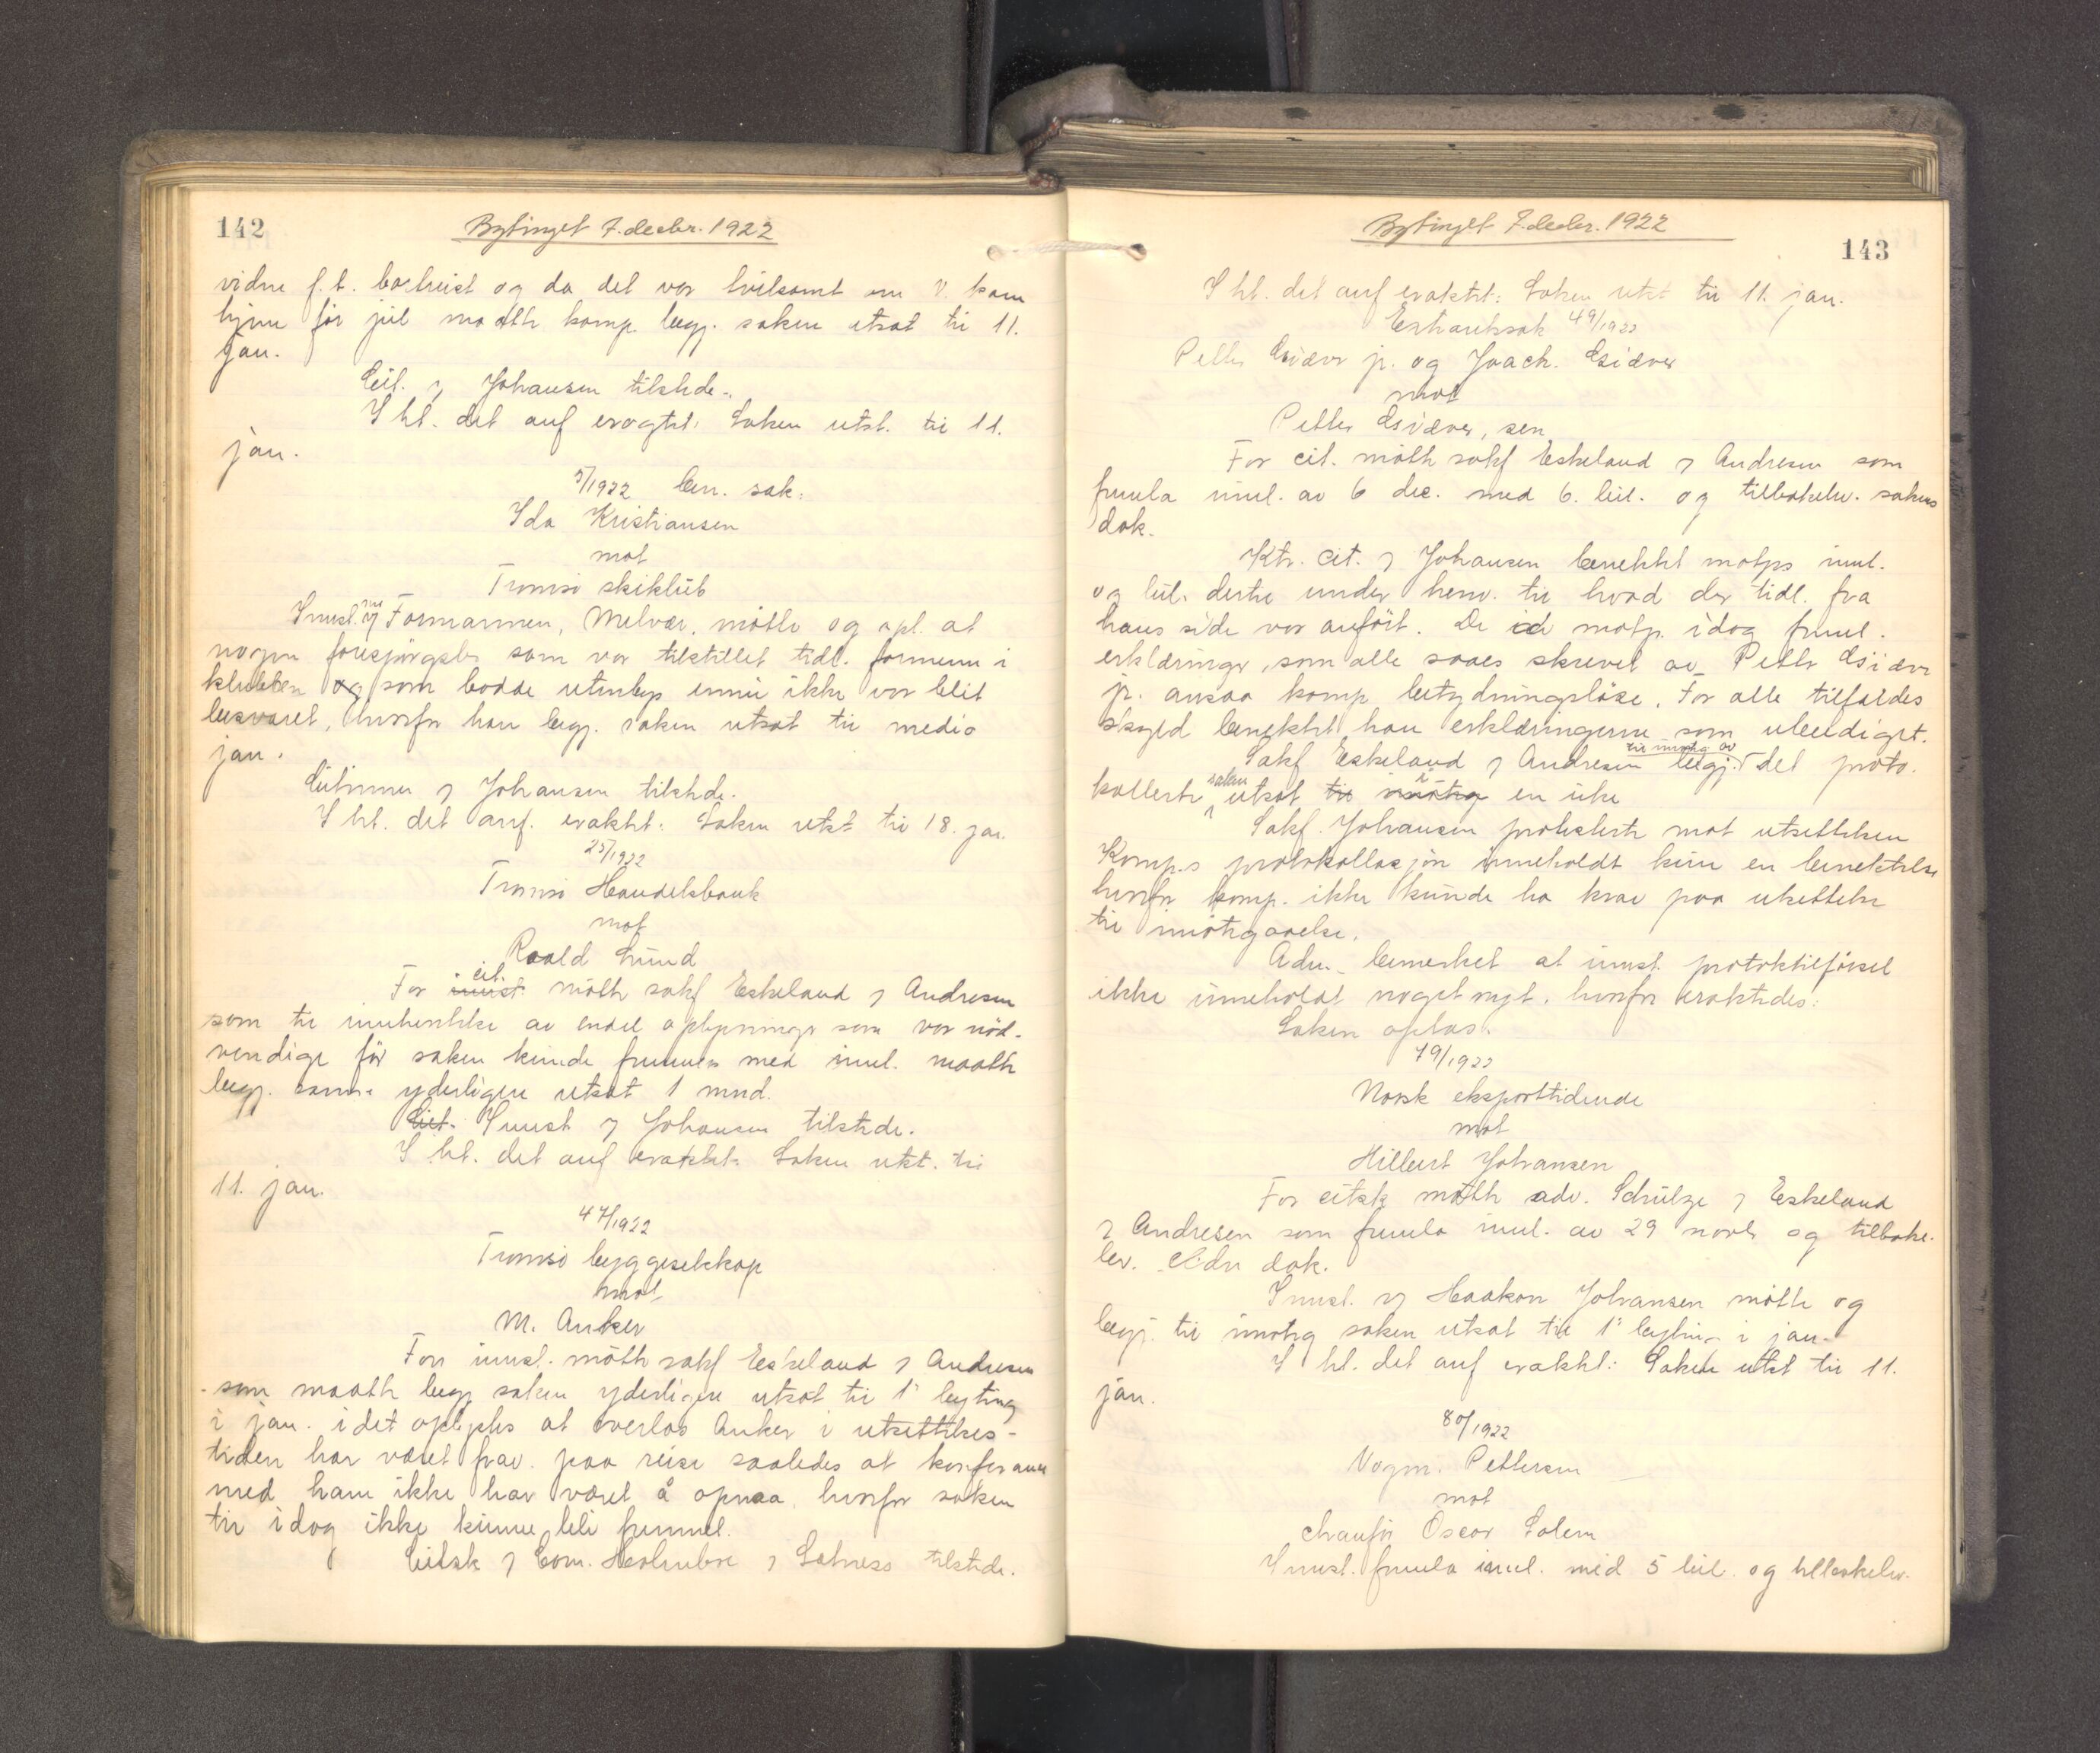 142
Bytinget 7. decbr. 1922
vidne f.t. bortreist og da det var tvilsomt om V. kom
hjem før jul maatte komp. begj. saken utsat til 11.
jan.
Cit. v Johansen tilstede.
I ht. det anf eragtet: Saken utst. til 11.
jan.
5/1922 ben. sak:
Ida Kristiansen
mot
Tromsø skiklub
Innst. v Formannen, Melvær, møtte og opl. at
nogen forespørgsler som var tilstillet tidl. formenn i
klubben og som bodde utenbys ennu ikke var blit
besvaret, hvorfor han begj. saken utsat til medio
jan.
Citinnen v Johansen tilstede.
I ht. det anf. eraktet: Saken utst til 18. jan.
25/1922
Tromsø Handelsbank
mot
Roald Lund
For innst. cit. møtte sakf Eskeland v Andresen
som til innhentelse av endel oplysninger som var nød-
vendige før saken kunde fremmes med innl. maatte
begj. samme yderligere utsat 1 mnd.
Cit. Innst v Johansen tilstede.
I ht. det anf eraktet: Saken utst. til
11. jan.
47/1922
Tromsø byggeselskap
mot
M. Anker
For innst. møtte sakf Eskeland v Andresen
som maatte begj saken yderligere utsat til 1' byting
i jan. idet oplystes at overlos Anker i utsettelses-
tiden har været frav. paa reise saaledes at konferanse
med ham ikke har været å opnaa, hvorfor saken
til idag ikke kunne bli fremmet.
Citsk v Com. Holmboe v Sotness tilstede.
143
Bytinget 7. decbr. 1922
I ht. det anf eraktet: Saken utst til 11. jan.
Ekstraretssak 49/1922
Petter Esiæver jr. og Joach. Esiæver
mot
Petter Esiæver, sen.
For cit. møtte sakf Eskeland v Andresen som
fremla innl. av 6 dec. med 6. bil. og tilbakelev. sakens
dok.
Ktr. cit. v Johansen benektet motps innl.
og bil. dertil under henv. til hvad der tidl. fra
hans side var anført. De av motp. idag freml.
erklæringer, som alle saaes skrevet av Petter Esiæver
jr. ansaa komp. betydningsløse. For alle tilfældes
skyld benektet han erklæringerne som ubeediget.
Sakf Eskeland v Andresen begj. til imøtg av det proto-
kollerte saken utsat til imøtg i en uke
Sakf. Johansen protesterte mot utsettelsen
Komp.s protokollasjon inneholdt kun en benektelse
hvorfor komp. ikke kunde ha krav paa utsettelse
til imøtegaaelse.
Adm. bemerket at innst. protoktilførsel
ikke inneholdt noget nyt, hvorfor eraktedes:
Saken optas.
79/1922
Norsk eksporttidende
mot
Hilbert Johansen
For citsk møtte adv. Schulze v Eskeland
v Andresen som fremla innl. av 29 novb og tilbake-
lev. eldre dok.
Innst. v Haakon Johansen møtte og
begj. til imøtg saken utsat til 1' byting i jan.
I ht. det anf eraktet: Saken utst til 11.
jan.
80/1922
Vogm. Pettersen
mot
chauffør Oscar Solem
Innst. fremla innl. med 5 bil. og tilbakelev.